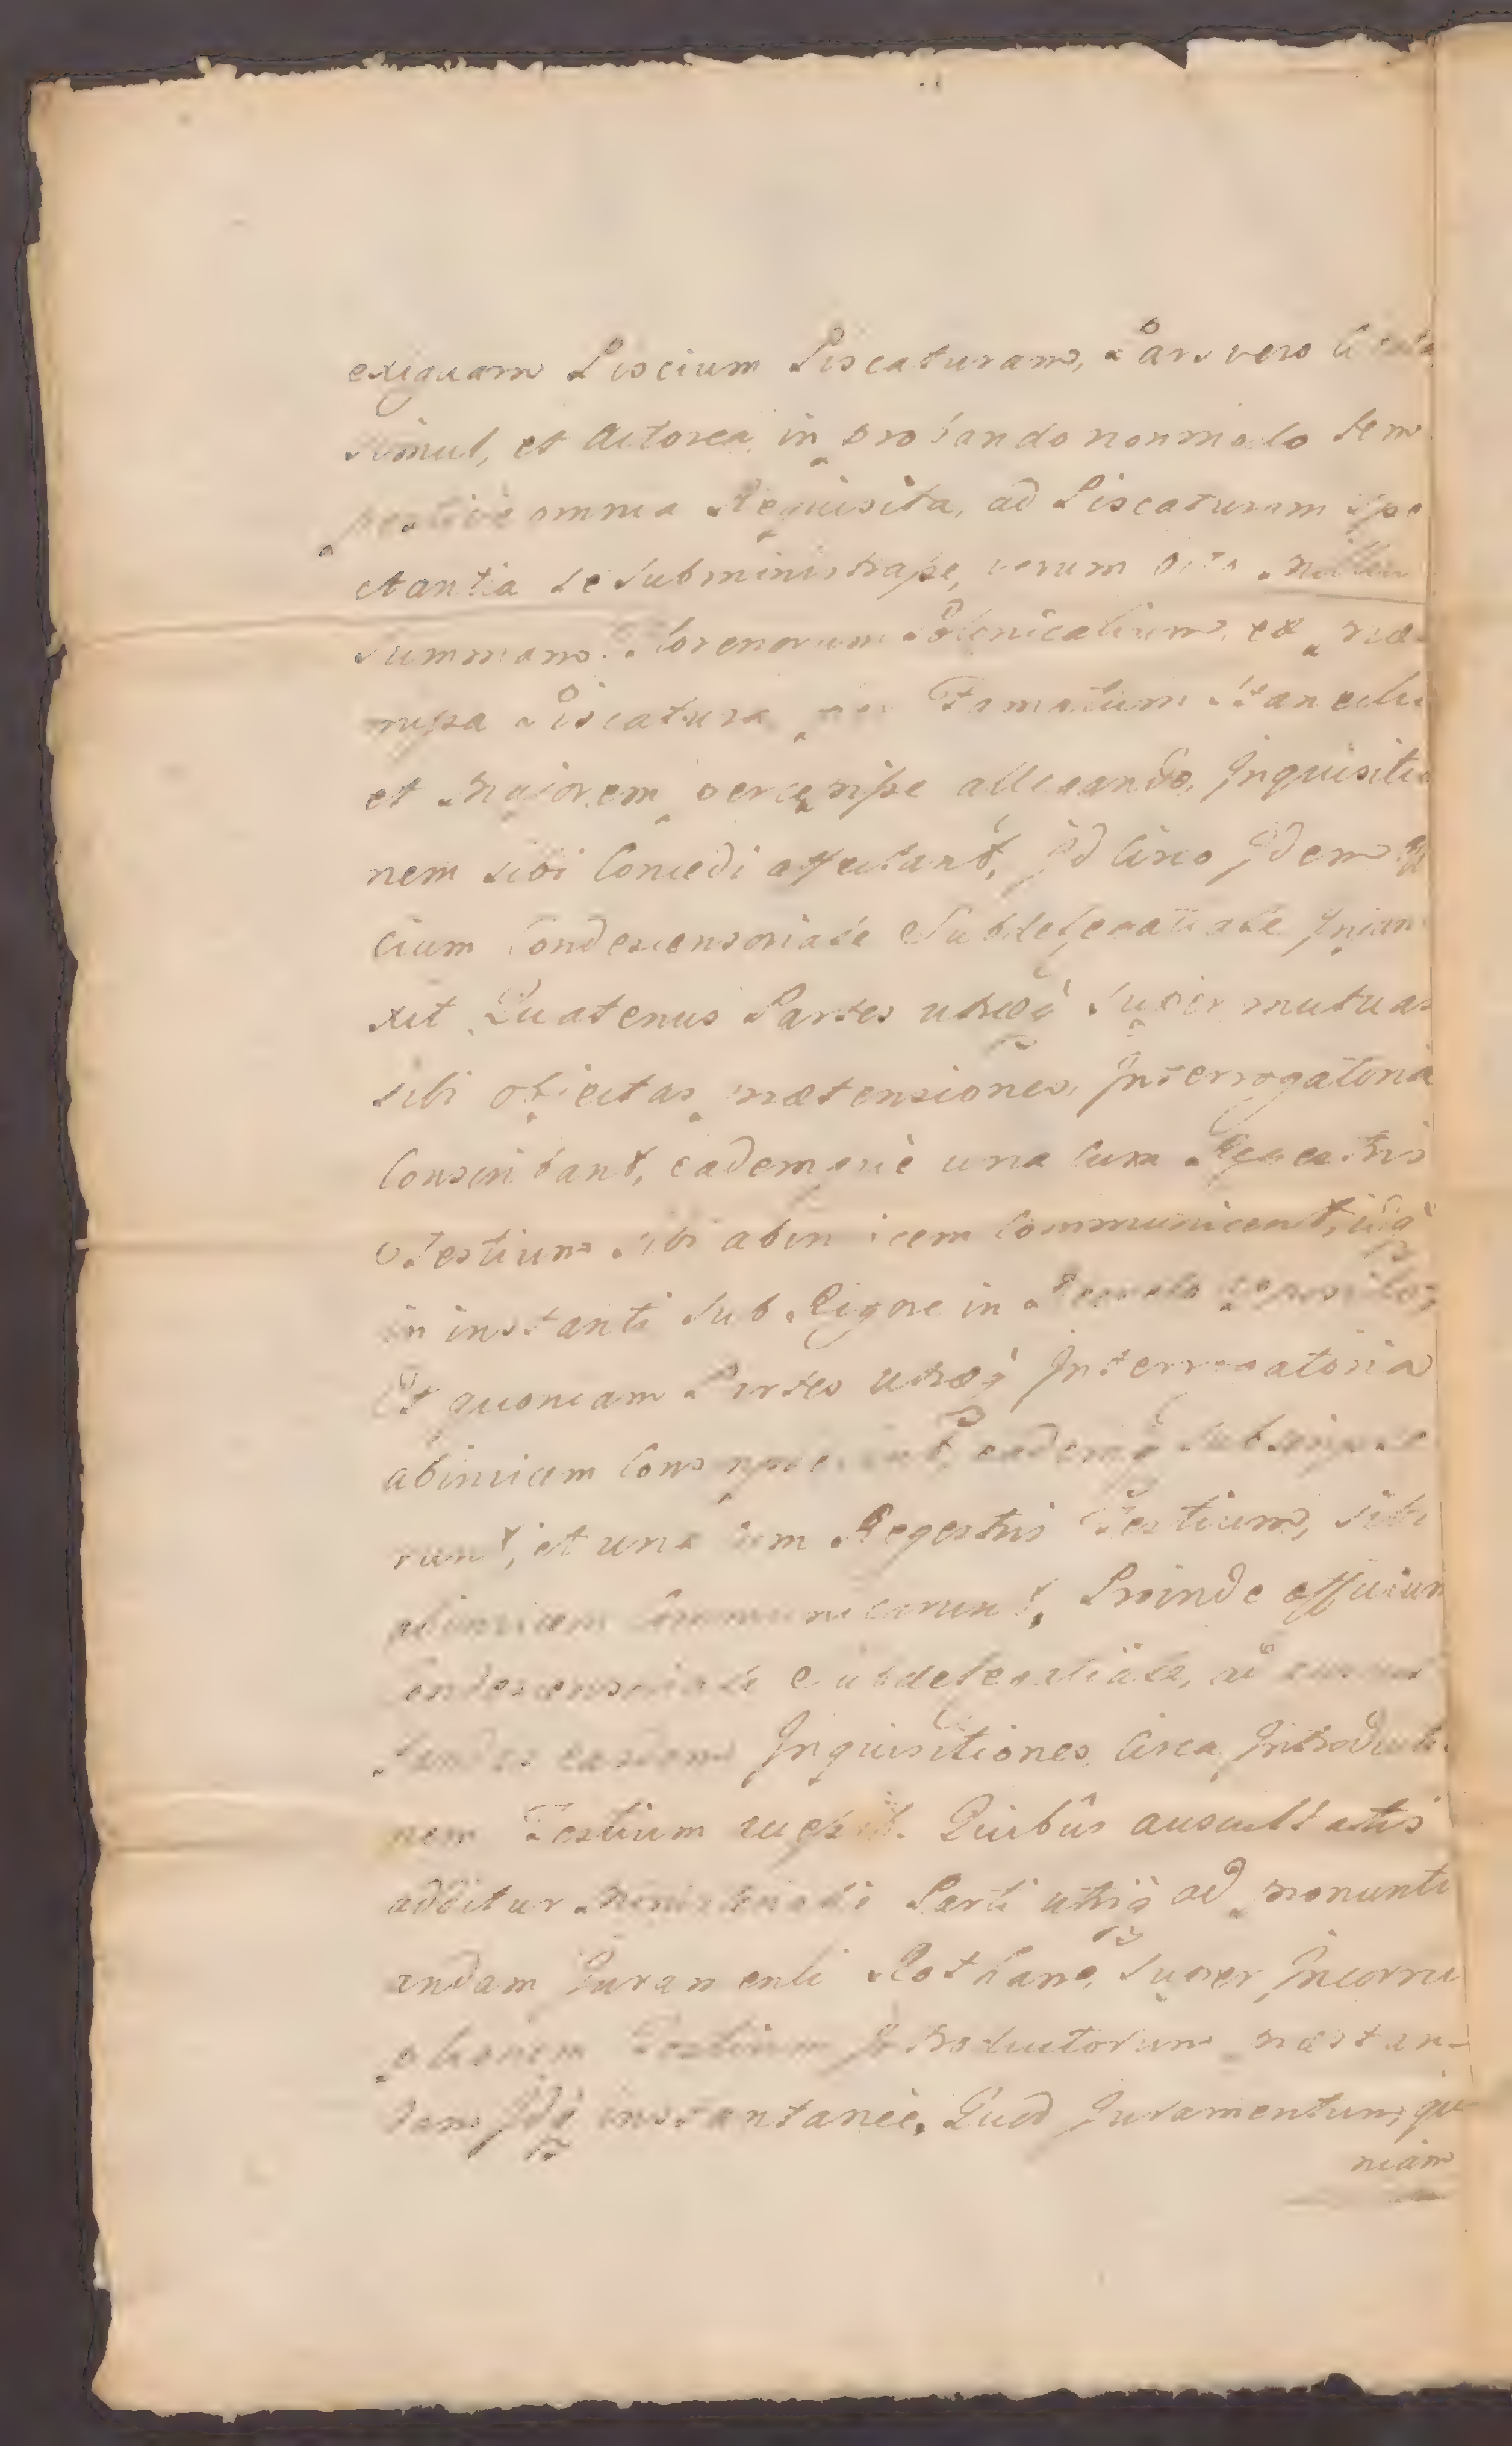 exiguam Piscium Piscaturam, Pars vero Citata
simul, et Actorea, in probando nonmodo tem
pestive omnia Requisita, ad Piscaturam spe
ctantia se subministrasse, verum
Summam Florenorum Polonicalium, ex præ
missa Piscatura per Famatum
et Majorem percepisse allegando, Inquisitio
nem sibi Concedi affectant, Id Circo Idem
cium Condescensoriale Subdelegatiale Injun
xit Quatenus Partes utræq̀ Super mutuas
sibi objectas prætensiones, Interrogatoria
Conscribant, eademquè una cum Regestris
Testium sibi abinvicem Communicent, idq̀
in instanti sub Rigore in
Et quoniam Partes utræq̀ Interrogatoria
abinvicem Conscripserunt, eademq̀ subscripse
runt, et una cum Regestris Testium, sibi
abinvicem Communicarunt, Proinde officium
Condescensoriale Subdelegatiale, ad
easdem Inquisitiones, Circa Introductio
nem Testium Quibûs auscultatis
additur Ministeriali Parti utriq̀ ad pronunti
andam Juramenti Rotham, Super Incorru
ptionem Testium Introductorum præstan-
dam Idq̀ instantaneè. Quod Juramentum, quo
niam